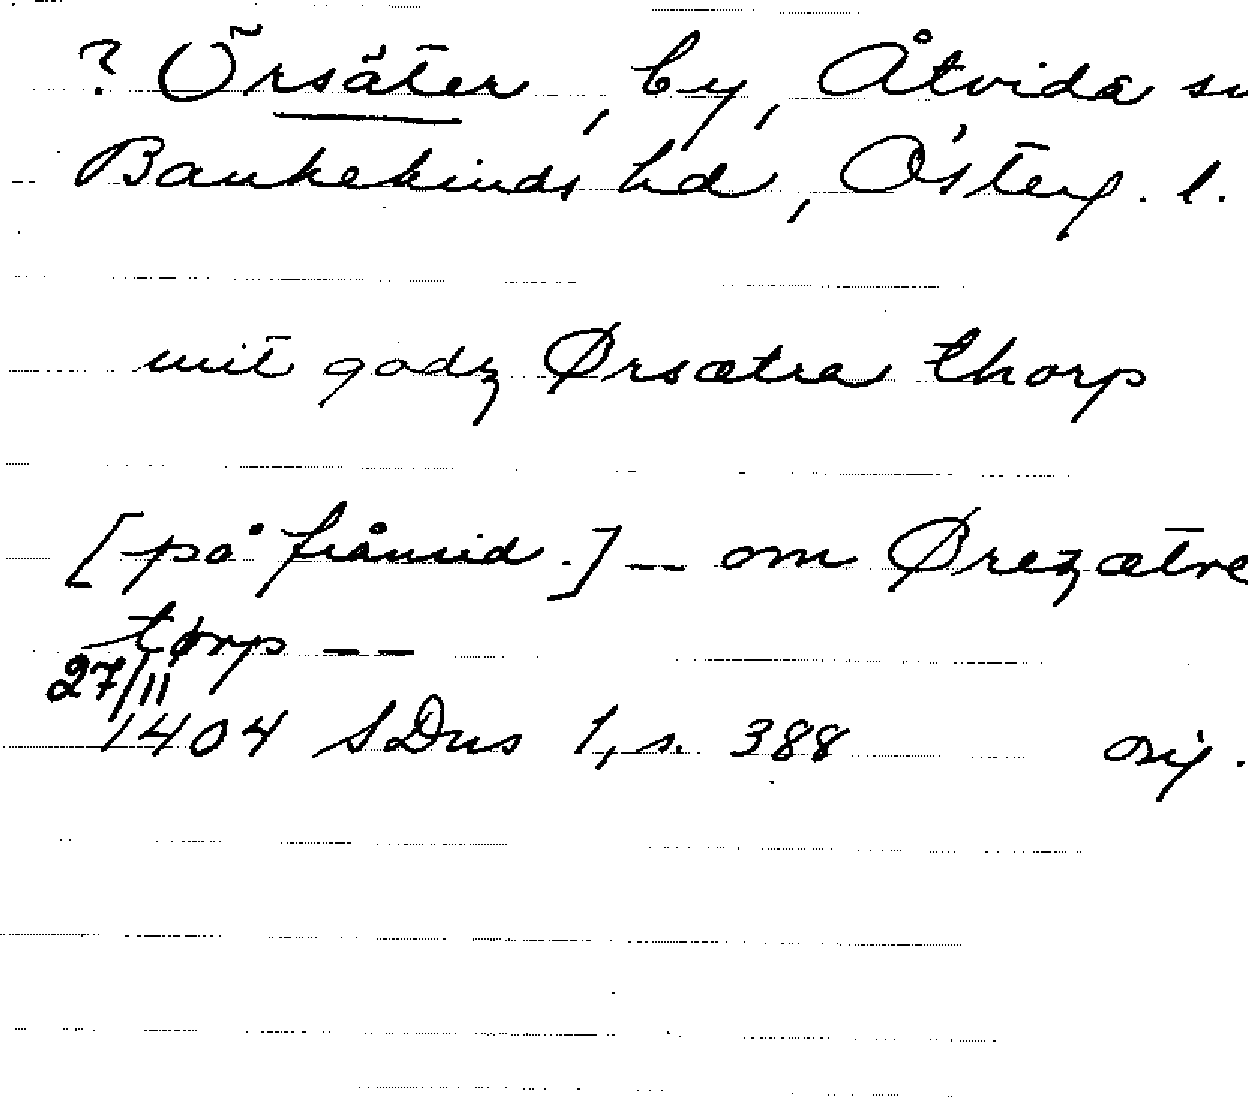 ? Örsäter, by, Åtvida sn
Bankekinds hd, Österg. l.
mit godz Ørsætra thorp
[på frånsid.] — om Ørezætre
torp — —
27/11
1404 SDns 1, s. 388 orig.